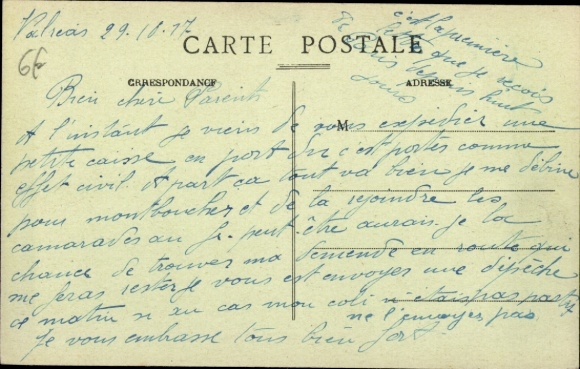 Valréas 29.10.17
c'est la première
que je reçois
depuis huit
jours
6F
CARTE POSTALE
CORRESPONDANCE
ADRESSE
Bien chers Parents
M
A l'instant je viens de vous expédier une
petite caisse en port du c'est portés comme
effet civil. A part ca tout va bien je me débine
pour montboucher et de la rejoindre les
camarades au peut être aurais-je la
chance de trouver ma demende en route qui
me feras rester je vous est envoyes une dépêche
ce matin si au cas mon coli n'étais pas partis
ne l'envoyez pas
Je vous embrasse tous bien fort.